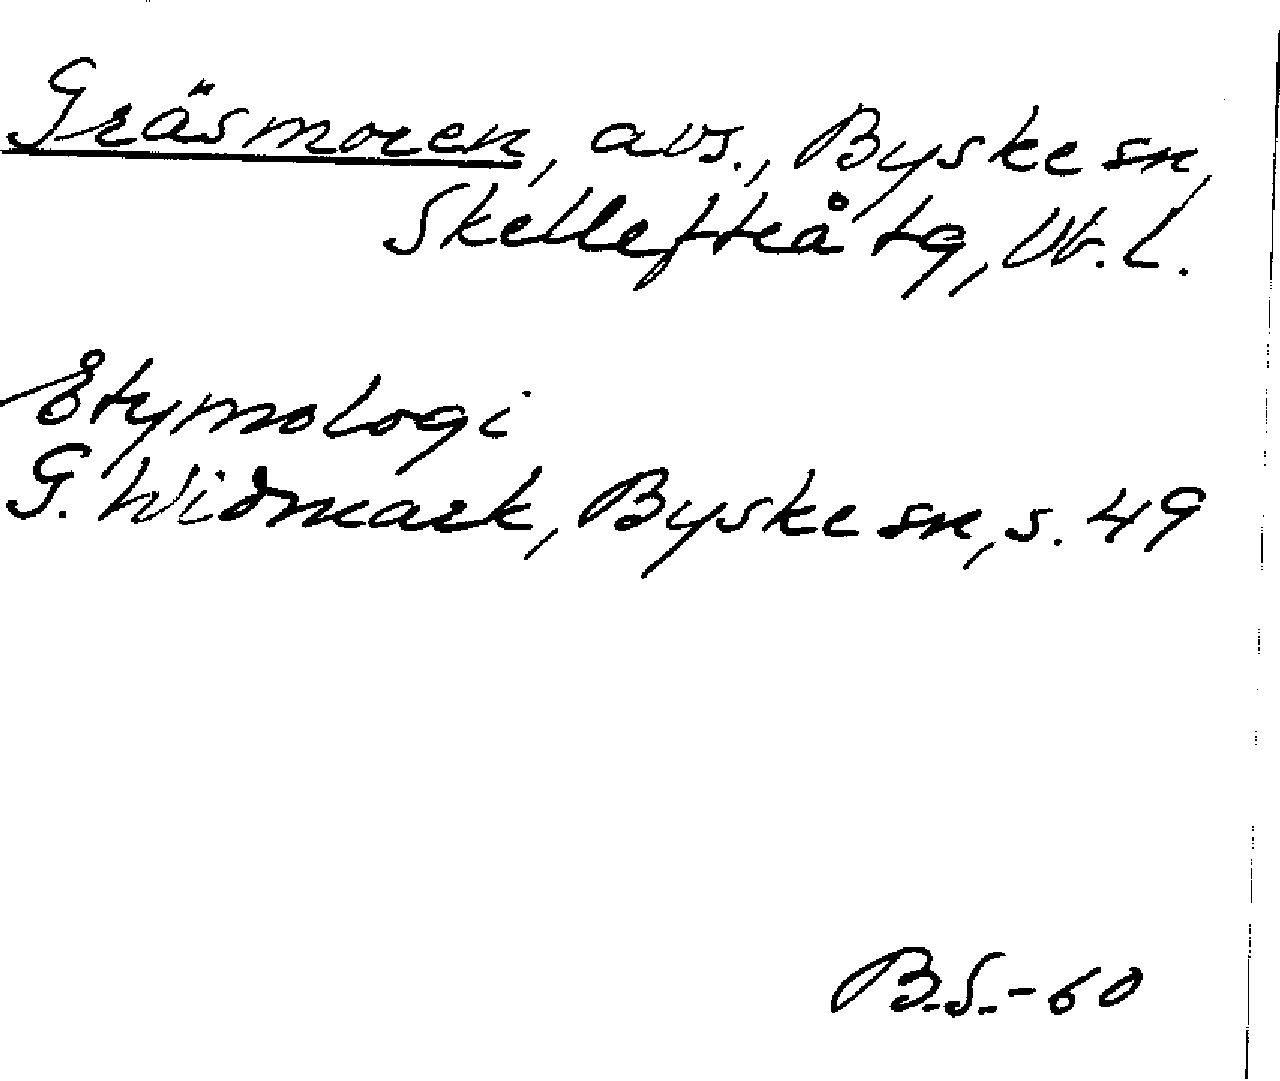 Gräsmoren, avs., Byske sn,
Skellefteå tg, Vb. l.
Etymologi
G. Widmark, Byske sn, s. 49
B.S.-60